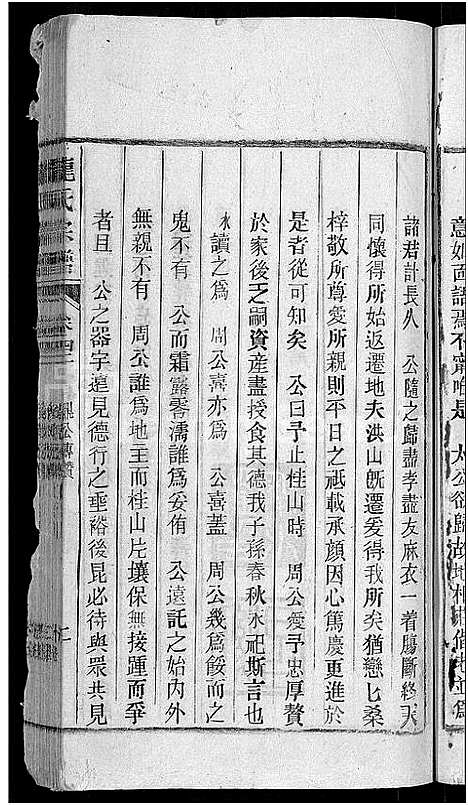 意如面語焉不齋
是　太公欲歸故地
諸君計長久　公隨之歸盡孝盡友麻衣一着腸斷終天
同懷得所始返遷地夫洪山既遷爰得我所矣猶戀匕桑
梓敬所尊愛所親則平日之祗載承顔因心篤慶更進於
是者從可知矣　公曰予止桂山時　周公愛予忠厚贅
於家後之嗣資產盡授食其德我子孫春秋水祀斯言也
求讀之爲　周公喜亦爲　公喜蓋　周公幾爲餒而之
鬼不有　公而霜露零濡誰爲妥侑　公遠託之始内外
無親不有　周公誰爲地主而桂山片壤保無接踵而爭
者且　公之器宇遠見德行之垂裕後昆必待與眾共見
龍氏宗譜
卷四
公傳贊
二